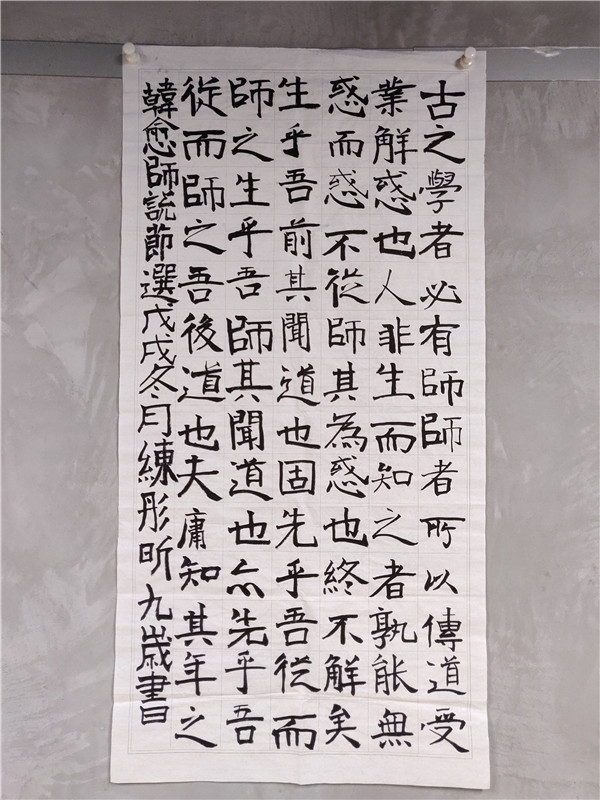 古之學者必有師師者所以傳道受
業解惑也人非生而知之者孰能無
惑而惑不從師其為惑也終不解矣
生乎吾前其聞道也固先乎吾從而
師之生乎吾師其聞道也亦先乎吾
從而師之吾後道也夫庸知其年之
韓愈師說節選戊戌冬月練彤昕九歲書